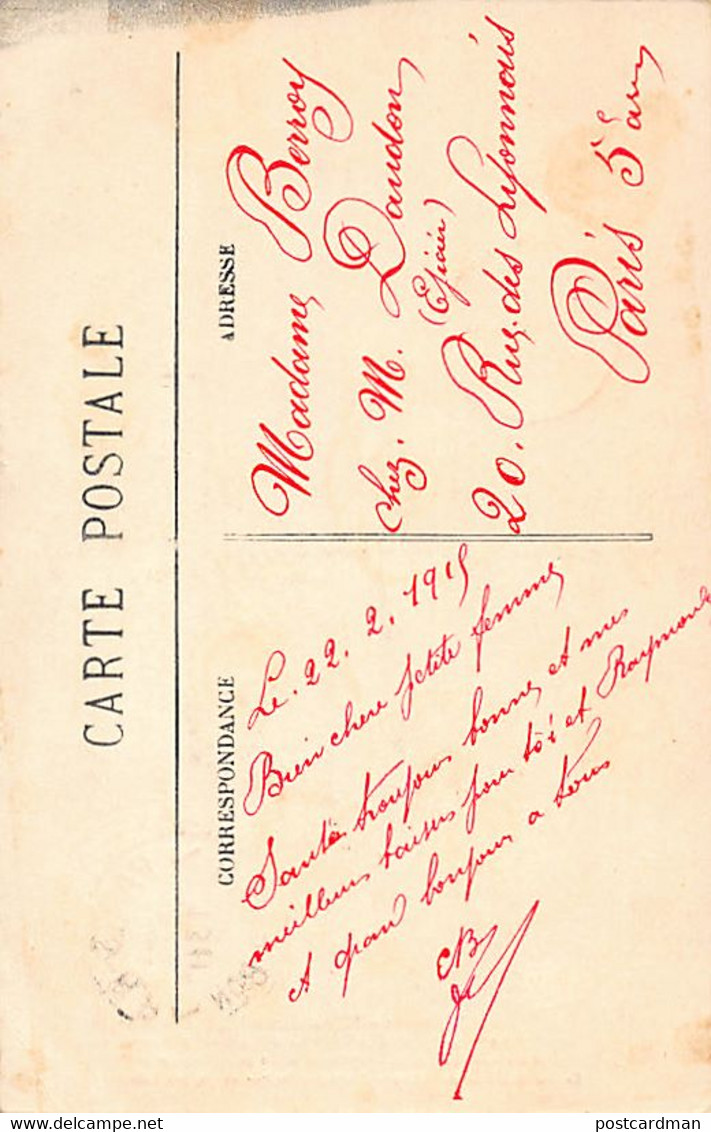 CARTE POSTALE
CORRESPONDANCE
Le. 22. 2. 1915
Bien chere petite femme
Santé toujours bonne et mes
meilleurs baisers pour toi et Raymond
et grand bonjour a tous
ADRESSE
Madame Berroy
chez. M. Daudon
(Epicier)
20. Rue des Lyonnais
Paris 5 arr
delcampe.net
postcardman